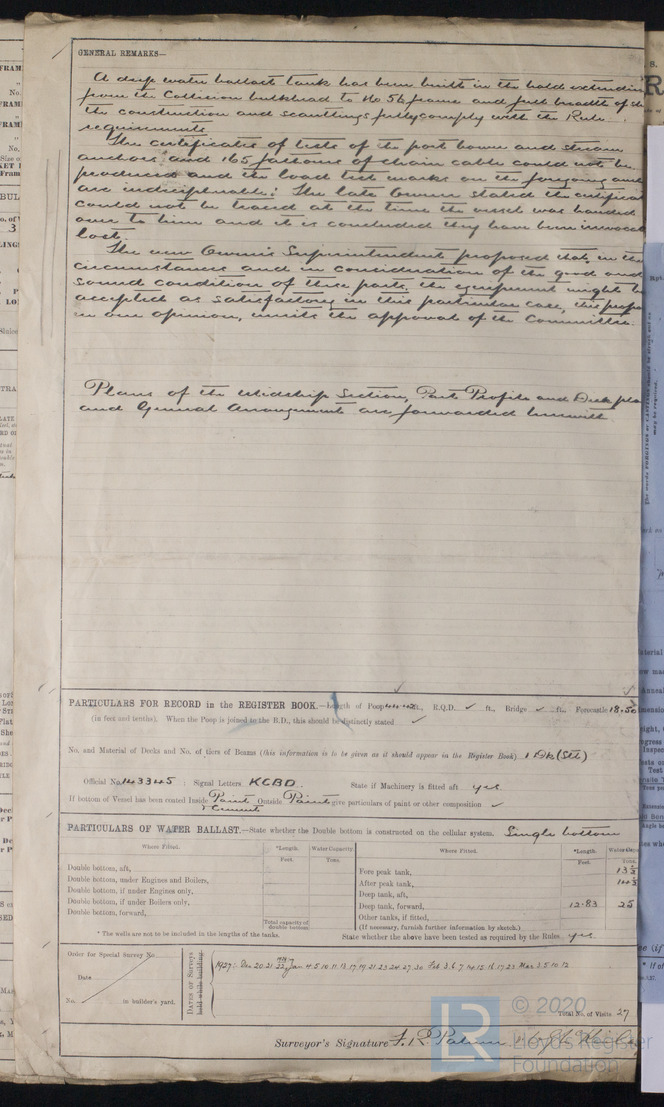 GENERAL REMARKS—
A deep water ballast tank has been built in the hold extending
from the Collision bulkhead to No 56 frame and full breadth of
the construction and scantlings fully comply with the Rule
requirements
The certificates of tests of the port bower and stream
anchors and 165 fathoms of chain cable could not be
produced and the load test marks on the foregoing
are indispensable: The late Owner stated the certificat
could not be traced at the time the vessel was handed
over to him and it is concluded they have been
lost.
The new Owners Superintendent proposed that, in the
circumstances and in consideration of the good and
sound condition of these parts, the equipment might be
accepted as satisfactory in this particular case, this propo
in our opinion, merits the approval of the Committee.
Plans of the Midship Section, Part Profile and Deck pla
and General Arrangement are forwarded herewith
PARTICULARS FOR RECORD in the REGISTER BOOK.—Length of Poop ft., R.Q.D. ✓ ft., Bridge ✓ ft., Forecastle 18.50
(in feet and tenths). When the Poop is joined to the B.D., this should be distinctly stated ✓
No. and Material of Decks and No. of tiers of Beams (this information is to be given as it should appear in the Register Book) 1 Dk (Stl)
Official No. 143345 ; Signal Letters KCBD. State if Machinery is fitted aft yes
If bottom of Vessel has been coated Inside Paint & Cement Outside Paint give particulars of paint or other composition ✓
PARTICULARS OF WATER BALLAST.—State whether the Double bottom is constructed on the cellular system. Single bottom
Where Fitted. *Length. Water Capacity. Where Fitted. *Length. Water
Feet. Tons. Feet. Tons.
Double bottom, aft, Fore peak tank, 13½
Double bottom, under Engines and Boilers, After peak tank,
Double bottom, if under Engines only, Deep tank, aft,
Double bottom, if under Boilers only, Deep tank, forward, 12.83 25
Double bottom, forward, Other tanks, if fitted,
Total capacity of double bottom (If necessary, furnish further information by sketch.)
* The wells are not to be included in the lengths of the tanks. State whether the above have been tested as required by the Rules yes
Order for Special Survey No.
Date
No. in builder's yard.
DATES of Surveys held while building
Dec 20 21 22 Jan 4 5 10 11 13 17 19 21 23 24 27 30 Feb 3 6 7 12 16 17 23 Mar 3 5 10 12
Total No. of Visits 27
Surveyor's Signature
© 2020
LR
Lloyd's Register
Foundation